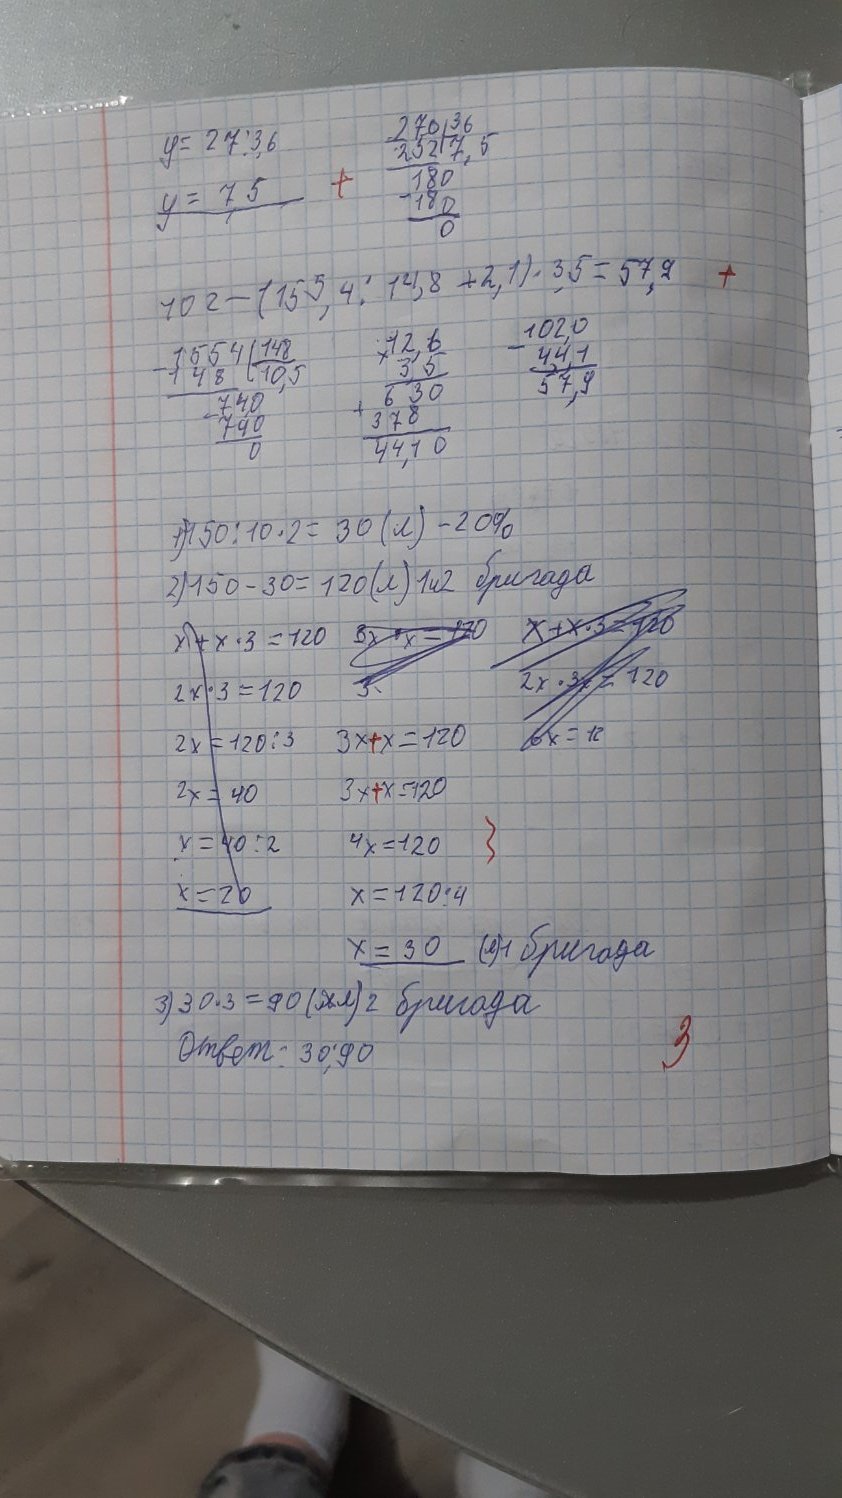 y = 27 : 3,6
y = 7,5
+
270 | 36
- 252 7,5
180
- 180
0
102 - (155,4 : 14,8 + 2,1) · 3,5 = 57,9 +
- 1554 | 148
148 10,5
- 740
740
0
× 12,6
3 5
6 30
+ 378
44,1 0
- 102,0
44,1
57,9
1) 150 : 10 · 2 = 30 (л) - 20%
2) 150 - 30 = 120 (л) 1и2 бригада
x + x · 3 = 120
2x · 3 = 120
2x = 120 : 3
2x = 40
x = 40 : 2
x = 20
3x + x = 120
3x + x = 120
4x = 120
x = 120 : 4
x = 30 (л) 1 бригада
x + x · 3 = 120
2x · 3x = 120
6x = 12
3) 30 · 3 = 90 (л) 2 бригада
Ответ: 30; 90
3